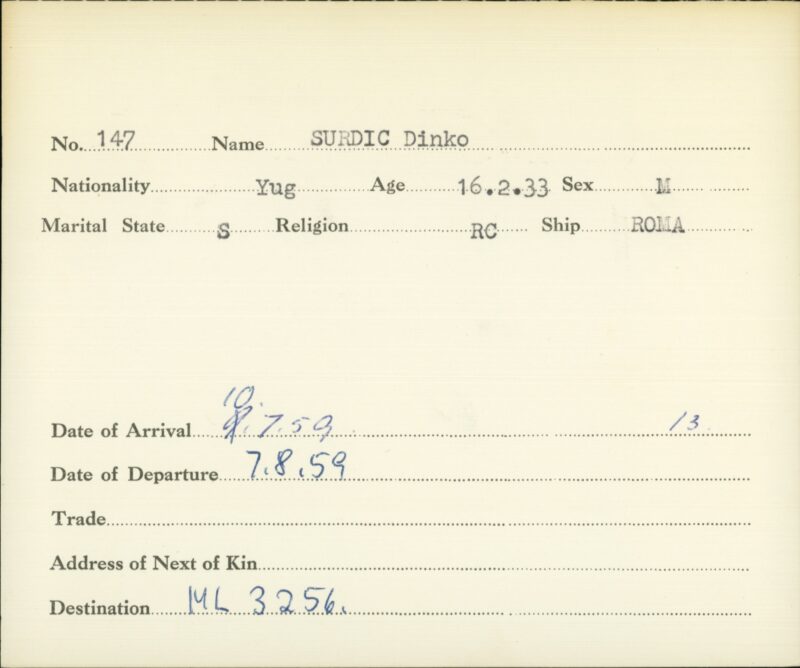 No. 147 Name SURDIC Dinko
Nationality Yug Age 16.2.33 Sex M
Marital State S Religion RC Ship ROMA
10.
Date of Arrival .7.59 13
Date of Departure 7.8.59
Trade
Address of Next of Kin
Destination ML 3256.